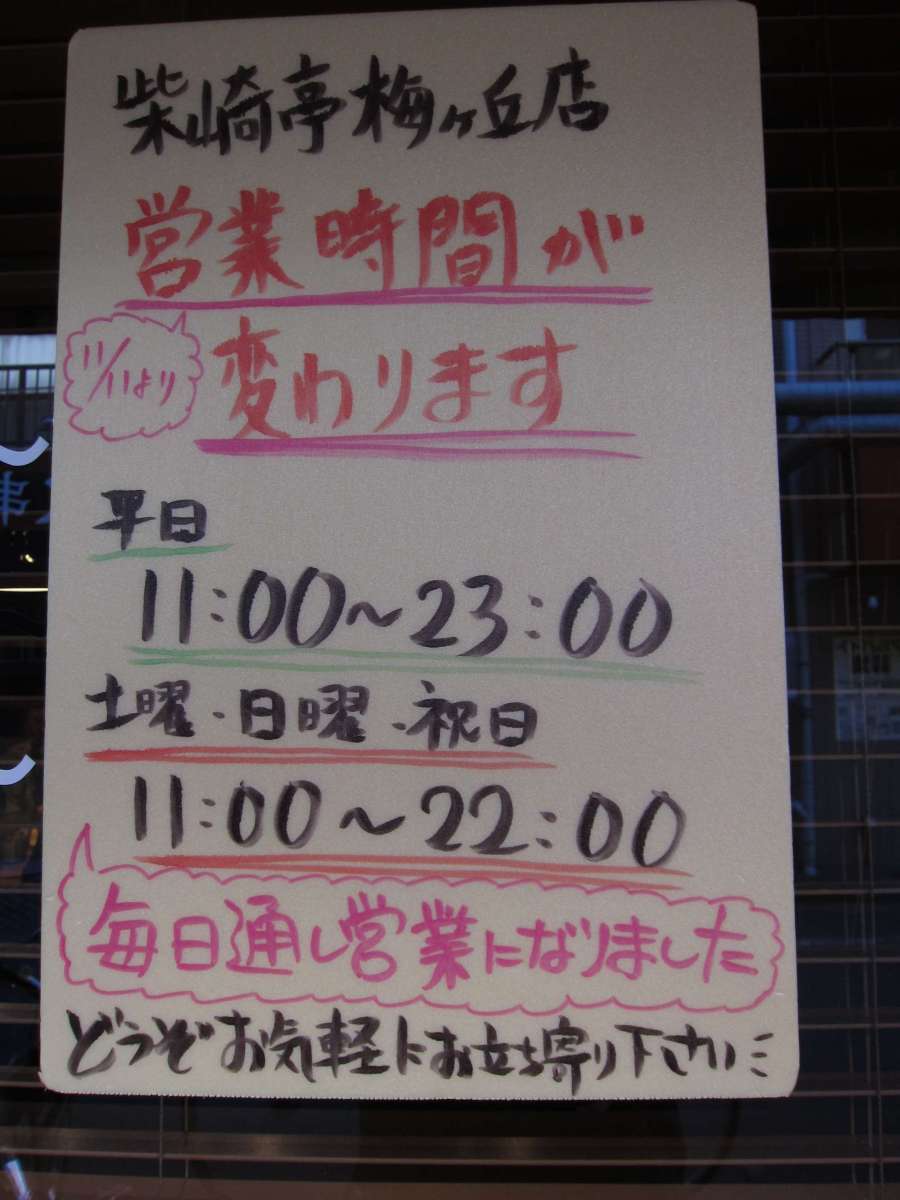 柴崎亭梅ヶ丘店
営業時間が
11/11より
変わります
平日
11:00～23:00
土曜・日曜・祝日
11:00～22:00
毎日通し営業になりました
どうぞお気軽にお立ち寄り下さい